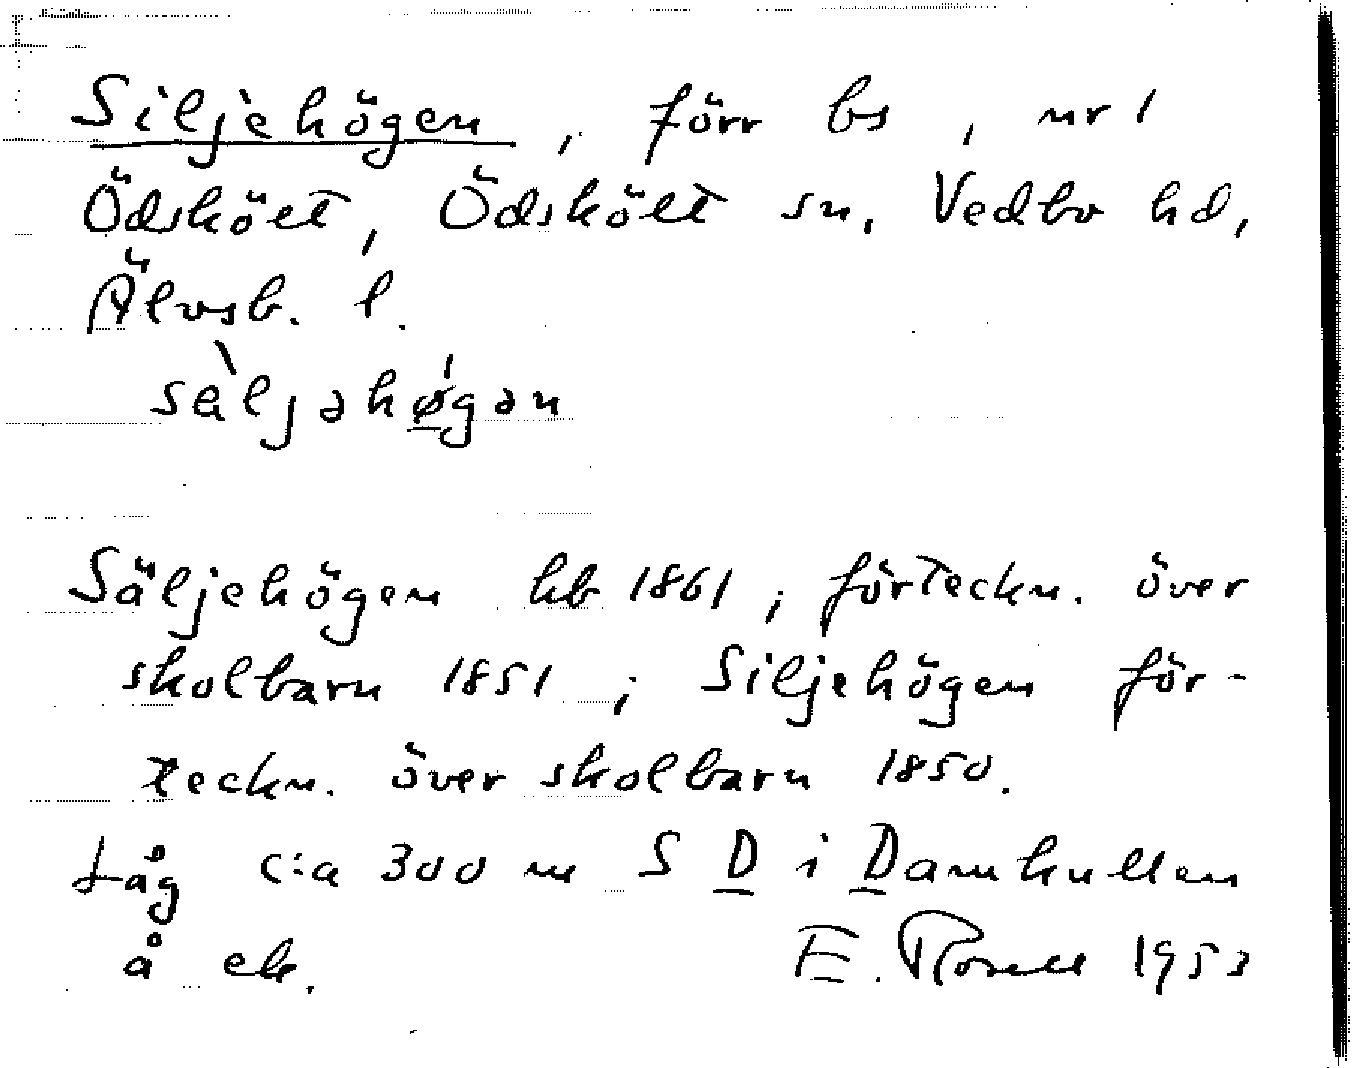 Siljehögen, förr bs, nr 1
Ödsköet, Ödskölt sn, Vedbo hd,
Älvsb. l.
sèljəhǿ̠gən
Säljehögen hb 1861; förteckn. över
skolbarn 1851; Siljehögen för-
teckn. över skolbarn 1850.
Låg c:a 300 m S D i Damkullen
å ek. E. Rosell 1953